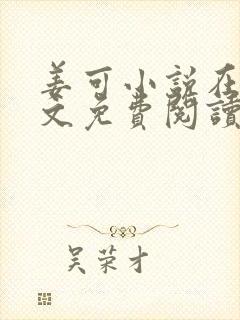 姜可小説在
文免費閱讀
吴荣才